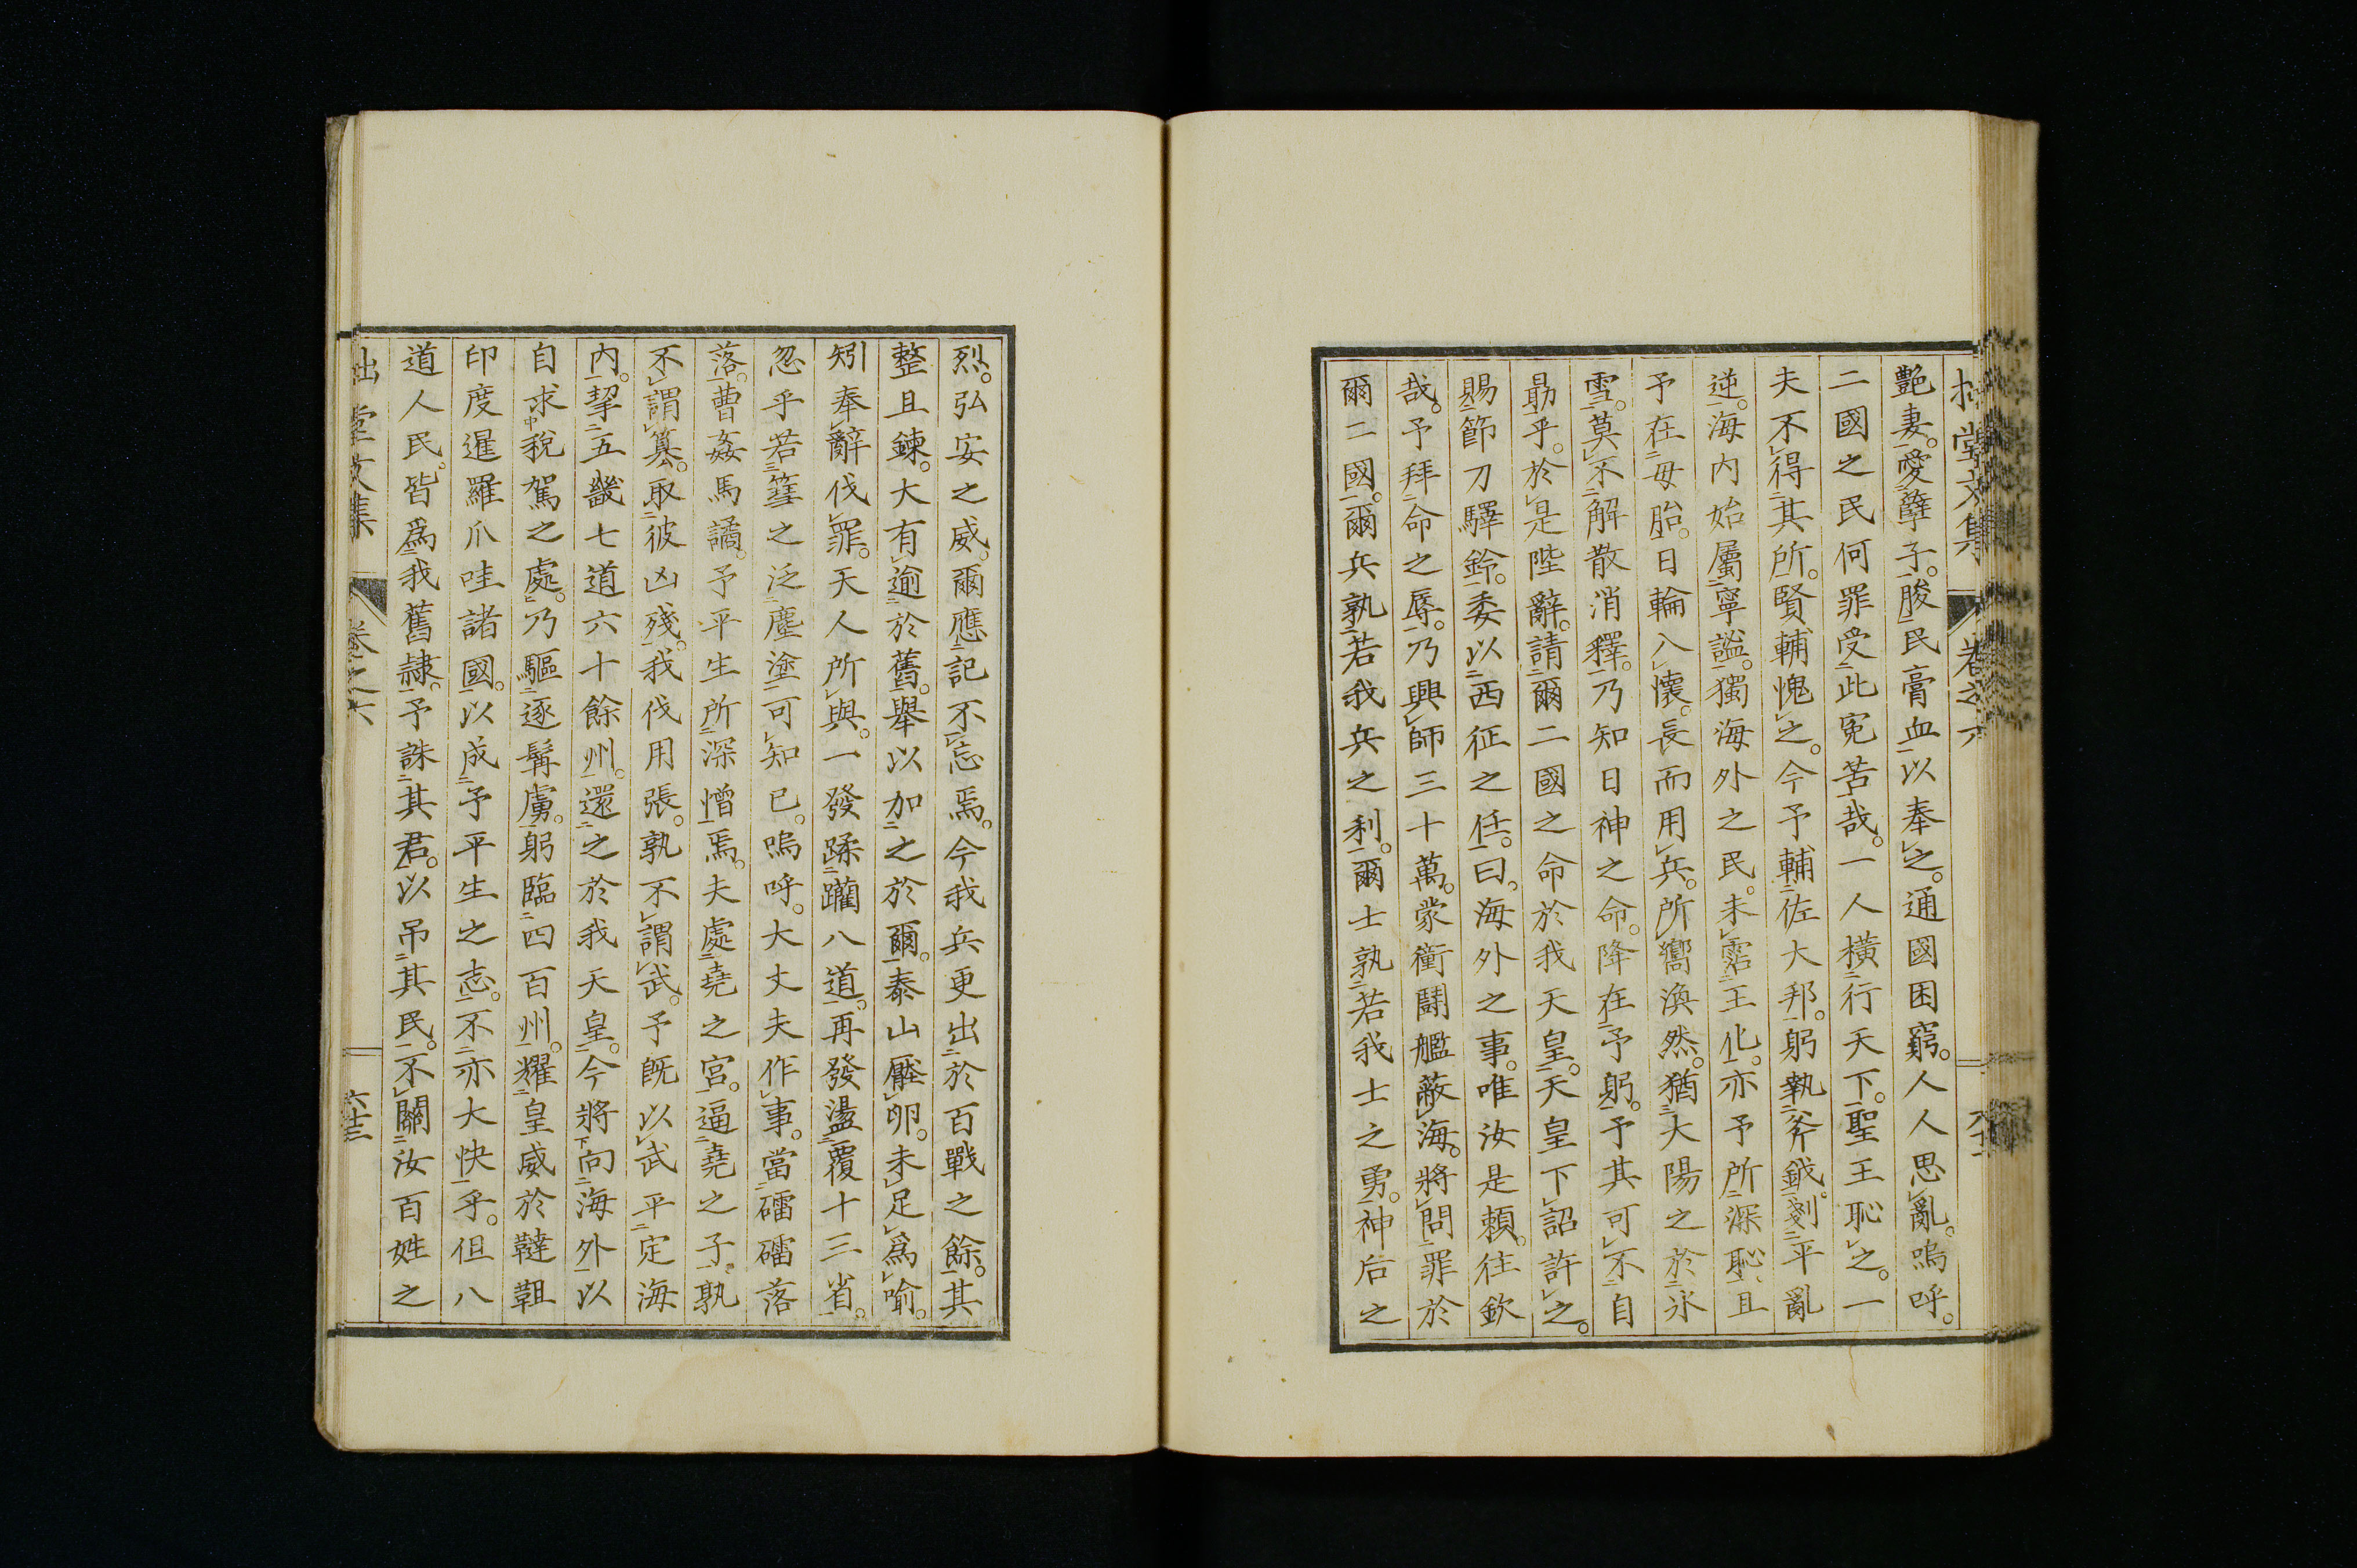 艷妻。愛孽子。朘民膏血以奉之。通國困窮。人人思亂。嗚呼。
二國之民何罪受此寃苦哉。一人橫行天下。聖王恥之。一
夫不得其所。賢輔愧之。今予輔佐大邦。躬執斧鉞。剗平亂
逆。海內始屬寧謐。獨海外之民。未霑王化。亦予所深恥、且
予在母胎。日輪入懷。長而用兵。所嚮渙然。猶大陽之於氷
雪。莫不解散消釋。乃知日神之命。降在予躬。予其可不自
勗乎。於是陛辭。請爾二國之命於我天皇。天皇下詔許之。
賜節刀驛鈴。委以西征之任。曰。海外之事。唯汝是賴。往欽
哉。予拜命之辱。乃興師三十萬。蒙衝鬪艦蔽海。將問罪於
爾二國。爾兵孰若我兵之利。爾士孰若我士之勇。神后之
烈。弘安之威。爾應記不忘焉。今我兵更出於百戰之餘。其
整且鍊。大有逾於舊。舉以加之於爾。泰山壓卵。未足爲喻。
矧奉辭伐罪。天人所與。一發蹂躪八道。再發盪覆十三省。
忽乎若篲之泛塵塗。可知已。嗚呼。大丈夫作事。當礌礌落
落。曹姦馬譎。予平生所深憎焉。夫處堯之宮。逼堯之子。孰
不謂簒。取彼凶殘。我伐用張。孰不謂武。予旣以武平定海
內。挈五畿七道六十餘州。還之於我天皇。今將向海外以
自求稅駕之處。乃驅逐髯虜。躬臨四百州。耀皇威於韃靼
印度暹羅爪哇諸國。以成予平生之志。不亦大快乎。但八
道人民。皆爲我舊隷。予誅其君。以吊其民。不關汝百姓之
堂文集 卷之六 六十三